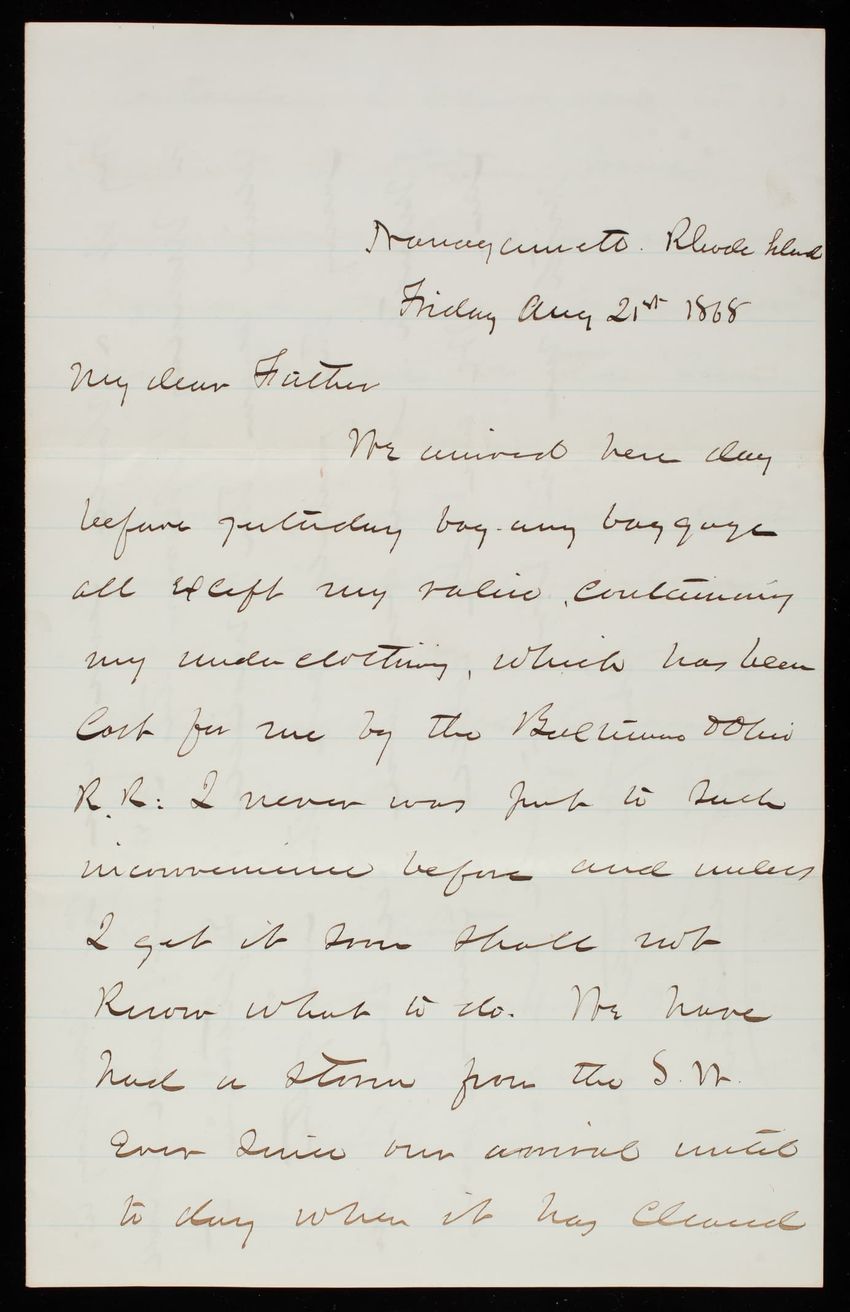 Narragansett. Rhode Island
Friday Aug 21st 1868
My dear Father
We arrived here day
before yesterday bag and baggage
all except my valise, containing
my under clothing, which has been
lost for me by the Baltimore & Ohio
R.R: I never was put to such
inconvenience before and unless
I get it soon shall not
know what to do. We have
had a storm from the S.W.
ever since our arrival until
to day when it has cleared